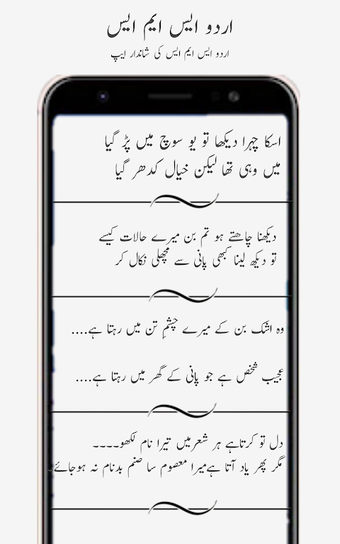 اردو ایس ایم ایس
اردو ایس ایم ایس کی شاندار ایپ
اسکا چہرا دیکھا تو یو سوچ میں پڑ گیا
میں وہی تھا لیکن خیال کدھر گیا
دیکھنا چاھتے ہو تم بن میرے حالات کیسے
تو دیکھ لینا کبھی پانی سے مچھلی نکال کر
وہ اشک بن کے میرے چشمِ تن میں رہتا ہے....
عجیب شخص ہے جو پانی کے گھر میں رہتا ہے....
دل تو کرتاہے ہر شعرمیں تیرا نام لکھو۔۔۔۔
مگر پھر یاد آتا ہےمیرا معصوم سا صنم بدنام نہ ہوجائے